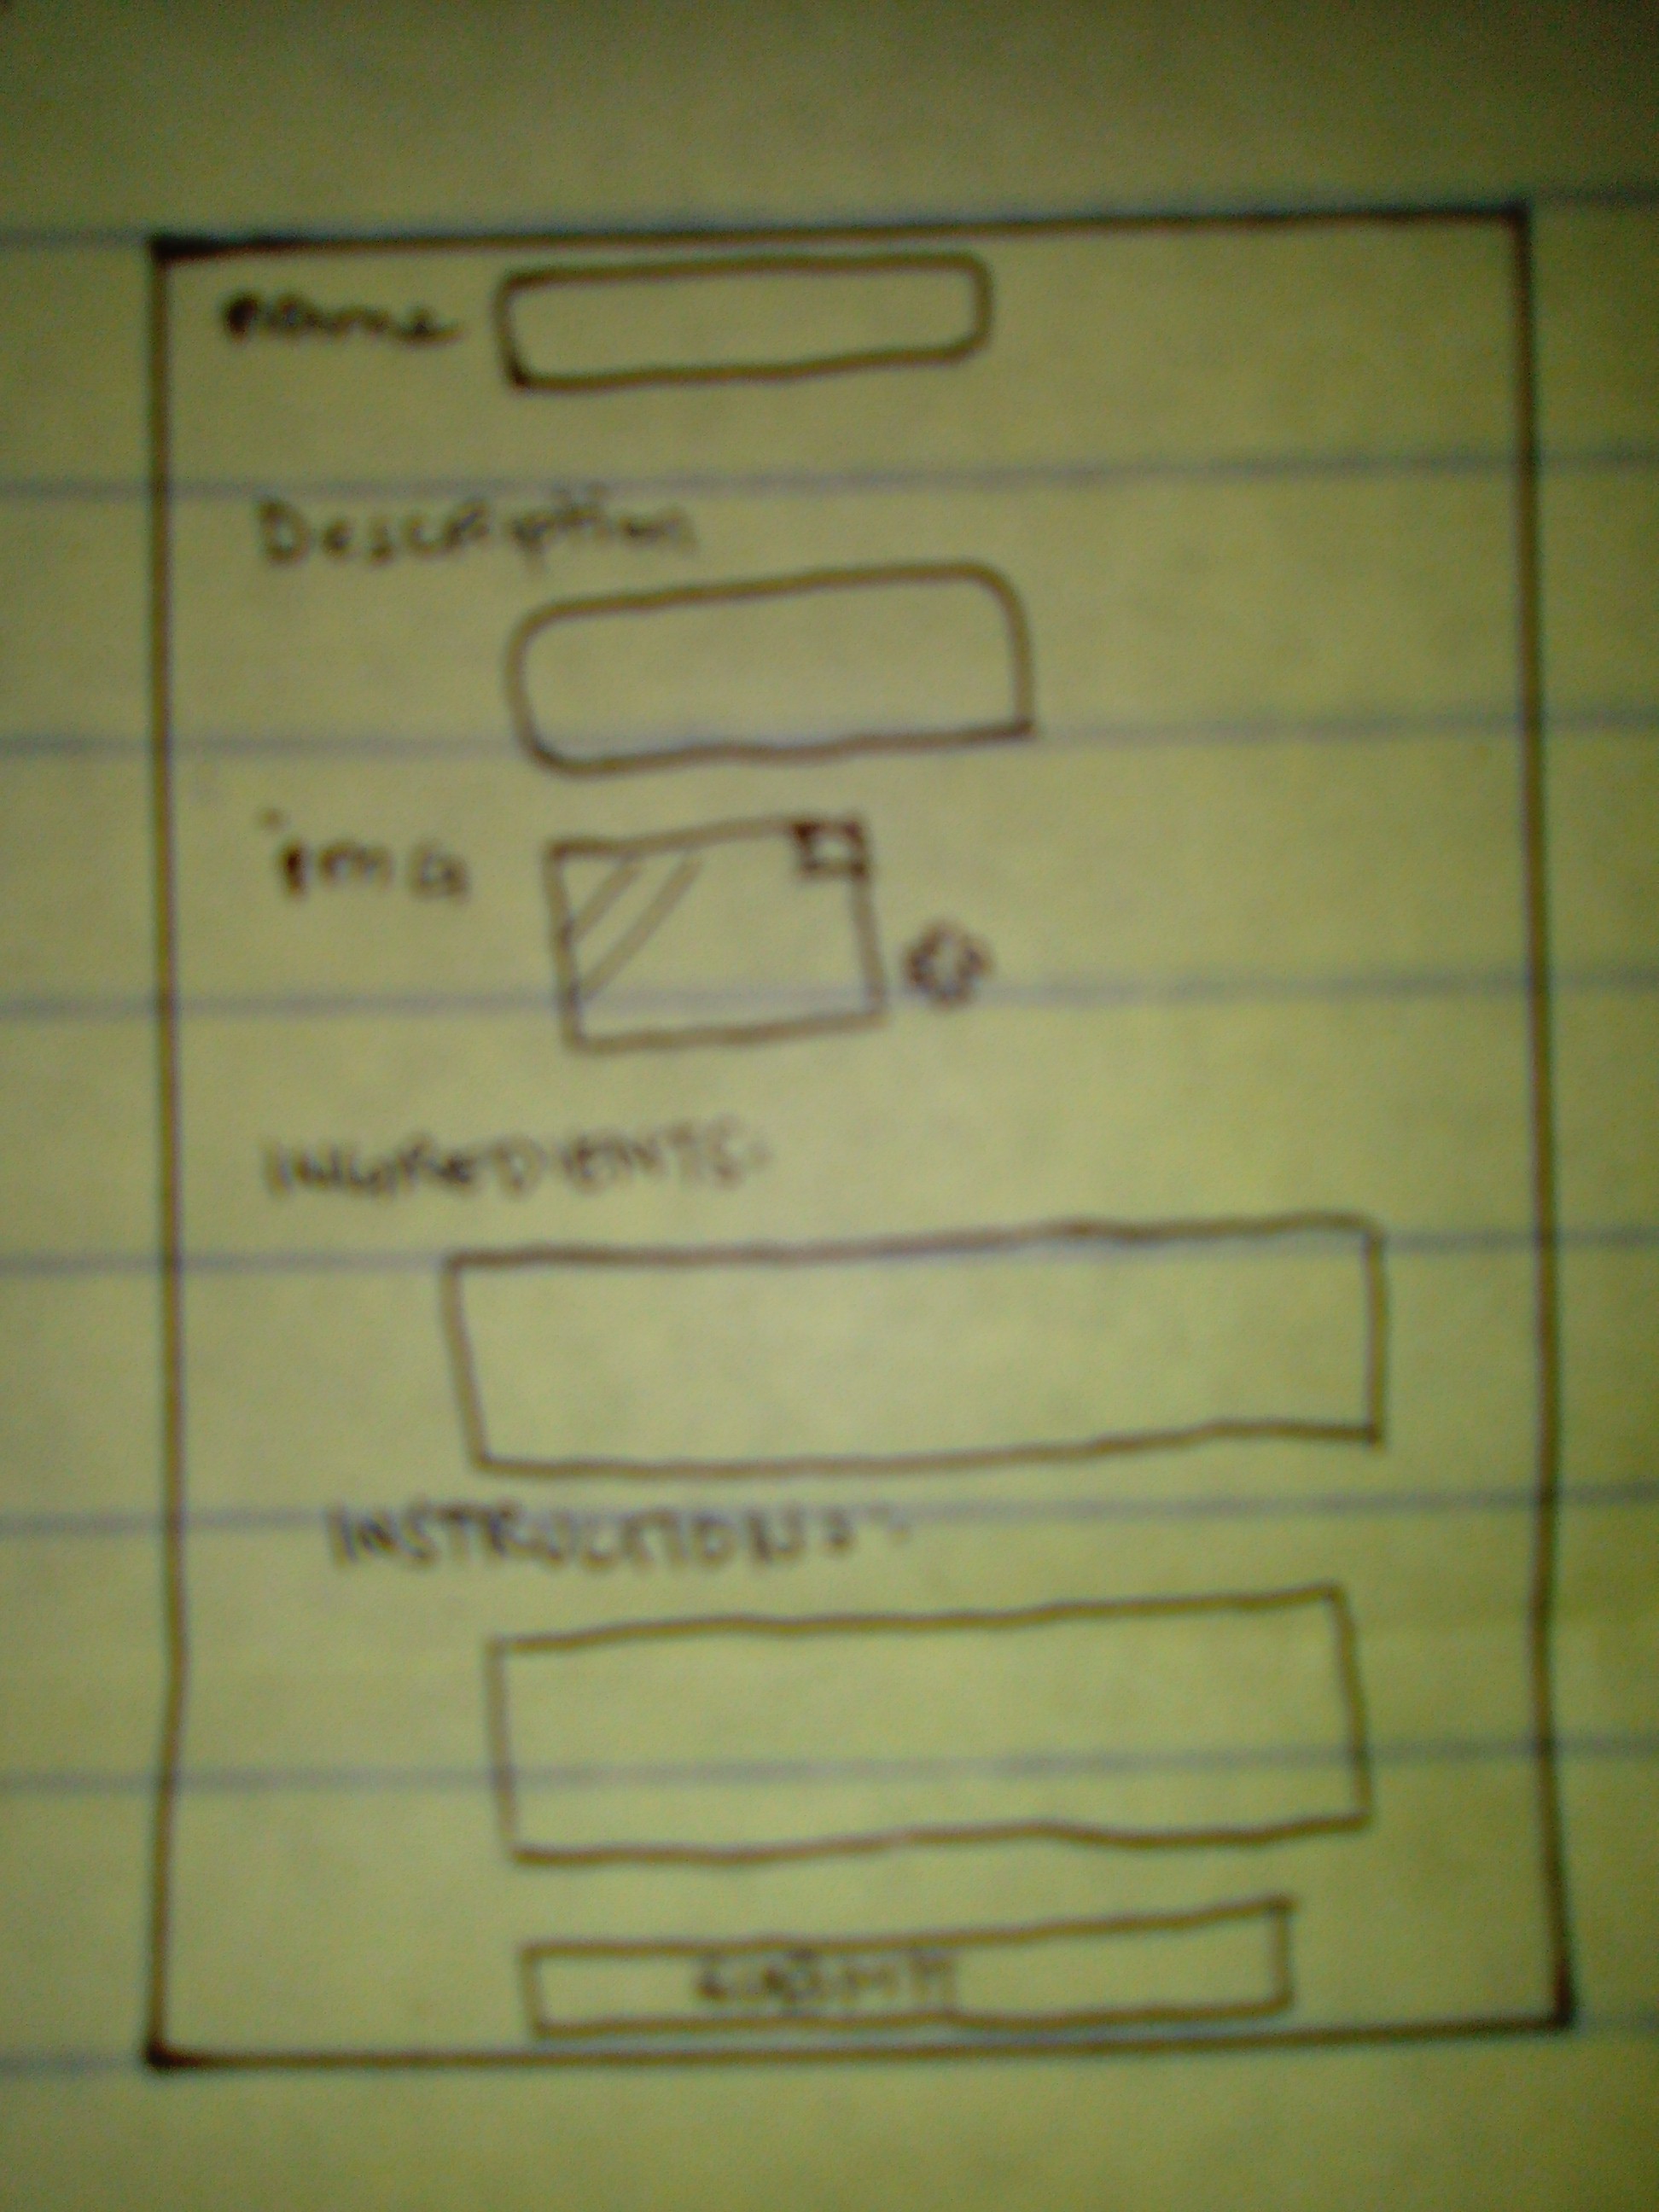 name
Description
img
INGREDIENTS:
INSTRUCTIONS:
SUBMIT